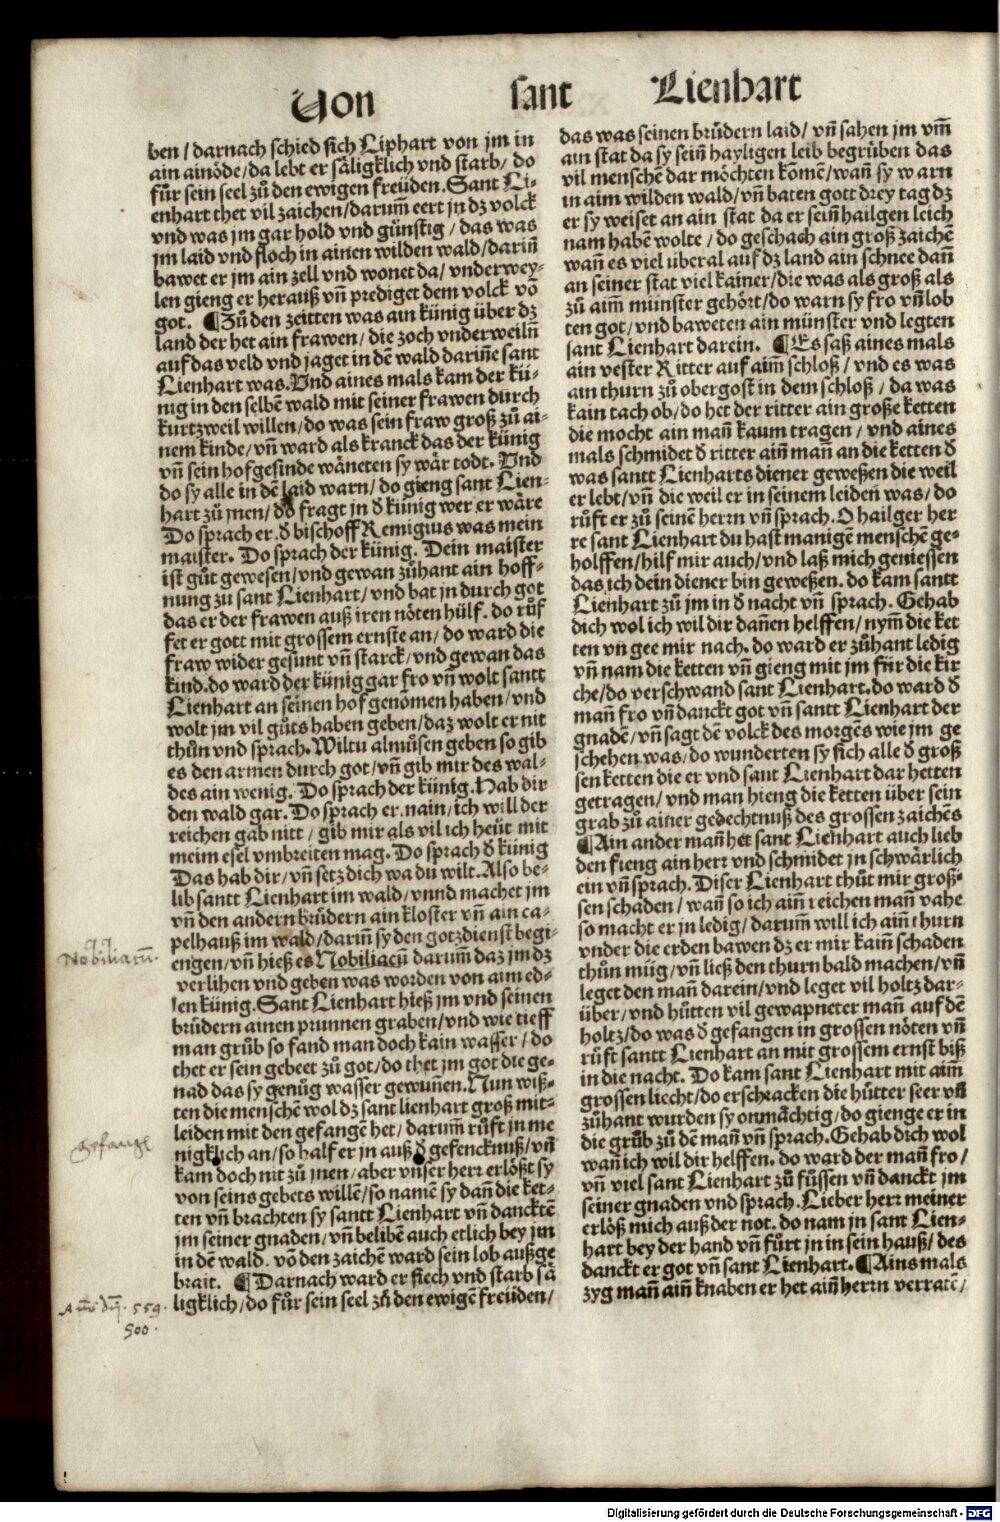 Von sant Lienhart
ben / darnach schied sich Liphart von jm in
ain ainöde / da lebt er säligklich vnd starb / do
fůr sein seel zů den ewigen freüden. Sant Li-
enhart thet vil zaichen / darum̃ eert jn dz volck
vnd was jm gar hold vnd günstig / das was
jm laid vnd floch in ainen wilden wald / dariñ
bawet er jm ain zell vnd wonet da / vnderwey-
len gieng er herauß vñ prediget dem volck võ
got. ¶ Zů den zeitten was ain künig über dz
land der het ain frawen / die zoch vnderweilñ
auf das veld vnd jaget in dẽ wald dariñe sant
Lienhart was. Vnd aines mals kam der kü-
nig in den selbẽ wald mit seiner frawen durch
kurtzweil willen / do was sein fraw groß zů ai-
nem kinde / vñ ward als kranck das der künig
vñ sein hofgesinde wäneten sy wär todt. Vnd
do sy alle in dẽ laid warn / do gieng sant Lien-
hart zů jnen / do fragt jn d̃ künig wer er wäre
Do sprach er. d̃ bischoff Remigius was mein
maister. Do sprach der künig. Dein maister
ist gůt gewesen / vnd gewan zůhant ain hoff-
nung zu sant Lienhart / vnd bat jn durch got
das er der frawen auß iren nöten hülf. do růf
fet er gott mit grossem ernste an / do ward die
fraw wider gesunt vñ starck / vnd gewan das
kind. do ward der künig gar fro vñ wolt santt
Lienhart an seinen hof genomen haben / vnd
wolt jm vil gůts haben geben / daz wolt er nit
thůn vnd sprach. Wiltu almůsen geben so gib
es den armen durch got / vñ gib mir des wal-
des ain wenig. Do sprach der künig. Hab dir
den wald gar. Do sprach er. nain / ich will der
reichen gab nitt / gib mir als vil ich heüt mit
meim esel vmbreiten mag. Do sprach d̃ künig
Das hab dir / vñ setz dich wa du wilt. Also be-
lib santt Lienhart im wald / vnnd machet jm
vñ den andern brůdern ain kloster vñ ain ca-
pelhauß im wald / dariñ sy den gotzdienst begi-
engen / vñ hieß es Nobiliacũ darum̃ daz jm dz
verlihen vnd geben was worden von aim ed-
len künig. Sant Lienhart hieß jm vnd seinen
brůdern ainen prunnen graben / vnd wie tieff
man grůb so fand man doch kain wasser / do
thet er sein gebeet zů got / do thet jm got die ge-
nad das sy genůg wasser gewuñen. Nun wiß-
ten die menschẽ wol dz sant lienhart groß mit-
leiden mit den gefangẽ het / darum̃ růft jn me
nigklich an / so half er jn auß d̃ gefencknuß / vñ
kam doch nit zů jnen / aber vnser herr erlößt sy
von seins gebets willẽ / so namẽ sy dañ die ket-
ten vñ brachten sy santt Lienhart vñ danckтẽ
jm seiner gnaden / vñ belibẽ auch etlich bey jm
in dẽ wald. võ den zaichẽ ward sein lob außge
brait. ¶ Darnach ward er siech vnd starb sä
ligklich / do fůr sein seel zů den ewigẽ freüden /
Nobiliacũ.
gefangẽ
559.
500.
das was seinen brůdern laid / vñ sahen jm vm̃
ain stat da sy seiñ hayligen leib begrůben das
vil menschẽ dar möchten komẽ / wañ sy warn
in aim wilden wald / vñ baten gott drey tag dz
er sy weiset an ain stat da er seiñ hailgen leich
nam habẽ wolte / do geschach ain groß zaichẽ
wañ es viel überal auf dz land ain schnee dañ
an seiner stat viel kainer / die was als groß als
zů aim̃ münster gehört / do warn sy fro vñ lob
ten got / vnd baweten ain münster vnd legten
sant Lienhart darein. ¶ Es saß aines mals
ain vester Ritter auf aim̃ schloß / vnd es was
ain thurn zů obergost in dem schloß / da was
kain tach ob / do het der ritter ain große ketten
die mocht ain mañ kaum tragen / vnd aines
mals schmidet d̃ ritter aiñ mañ an die ketten d̃
was santt Lienharts diener geweßen die weil
er lebt / vñ die weil er in seinem leiden was / do
růft er zů seinẽ herrn vñ sprach. O hailger her
re sant Lienhart du hast manigẽ menschẽ ge-
holffen / hilf mir auch / vnd laß mich geniessen
das ich dein diener bin geweßen. do kam santt
Lienhart zů jm in d̃ nacht vñ sprach. Gehab
dich wol ich wil dir dañen helffen / nym̃ die ket
ten vn gee mir nach. do ward er zůhant ledig
vñ nam die ketten vñ gieng mit jm für die kir
che / do verschwand sant Lienhart. do ward d̃
mañ fro vñ danckt got vñ santt Lienhart der
gnadẽ / vñ sagt dẽ volck des morgẽs wie jm ge
schehen was / do wunderten sy sich alle d̃ groß
sen ketten die er vnd sant Lienhart dar hetten
getragen / vnd man hieng die ketten über sein
grab zů ainer gedechtnuß des grossen zaichẽs
¶ Ain ander mañ het sant Lienhart auch lieb
den fieng ain herr vnd schmidet jn schwärlich
ein vñ sprach. Diser Lienhart thůt mir groß-
sen schaden / wañ so ich aiñ reichen mañ vahe
so macht er jn ledig / darum̃ will ich aiñ thurn
vnder die erden bawen dz er mir kaiñ schaden
thůn müg / vñ ließ den thurn bald machen / vñ
leget den mañ darein / vnd leget vil holtz dar-
über / vnd hůtten vil gewapneter mañ auf dẽ
holtz / do was d̃ gefangen in grossen nöten vñ
růft santt Lienhart an mit grossem ernst biß
in die nacht. Do kam sant Lienhart mit aim̃
grossen liecht / do erschracken die hůtter seer vñ
zůhant wurden sy onmächtig / do gienge er in
die grůb zů dẽ mañ vñ sprach. Gehab dich wol
wañ ich wil dir helffen. do ward der mañ fro /
vñ viel sant Lienhart zů füssen vñ danckt jm
seiner gnaden vnd sprach. Lieber herr meiner
erlöß mich auß der not. do nam jn sant Lien-
hart bey der hand vñ fůrt jn in sein hauß / des
danckt er got vñ sant Lienhart. ¶ Ains mals
zyg mañ aiñ knaben er het aiñ herrn verratẽ /
Digitalisierung gefördert durch die Deutsche Forschungsgemeinschaft - DFG